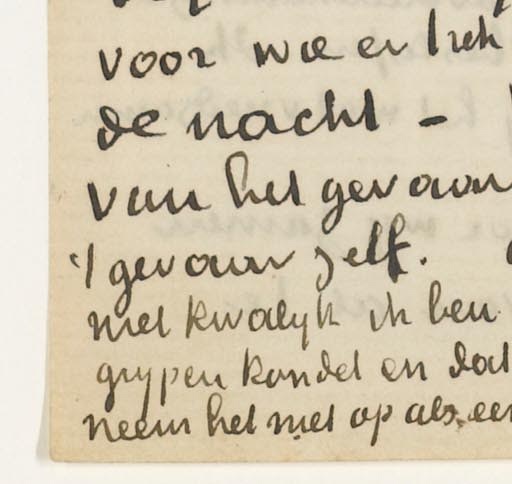 voor we er
de nacht -
van het gevaar
't gevaar zelf.
niet kwalijk ik ben
grijpen kondet en dat
neem het niet op als een